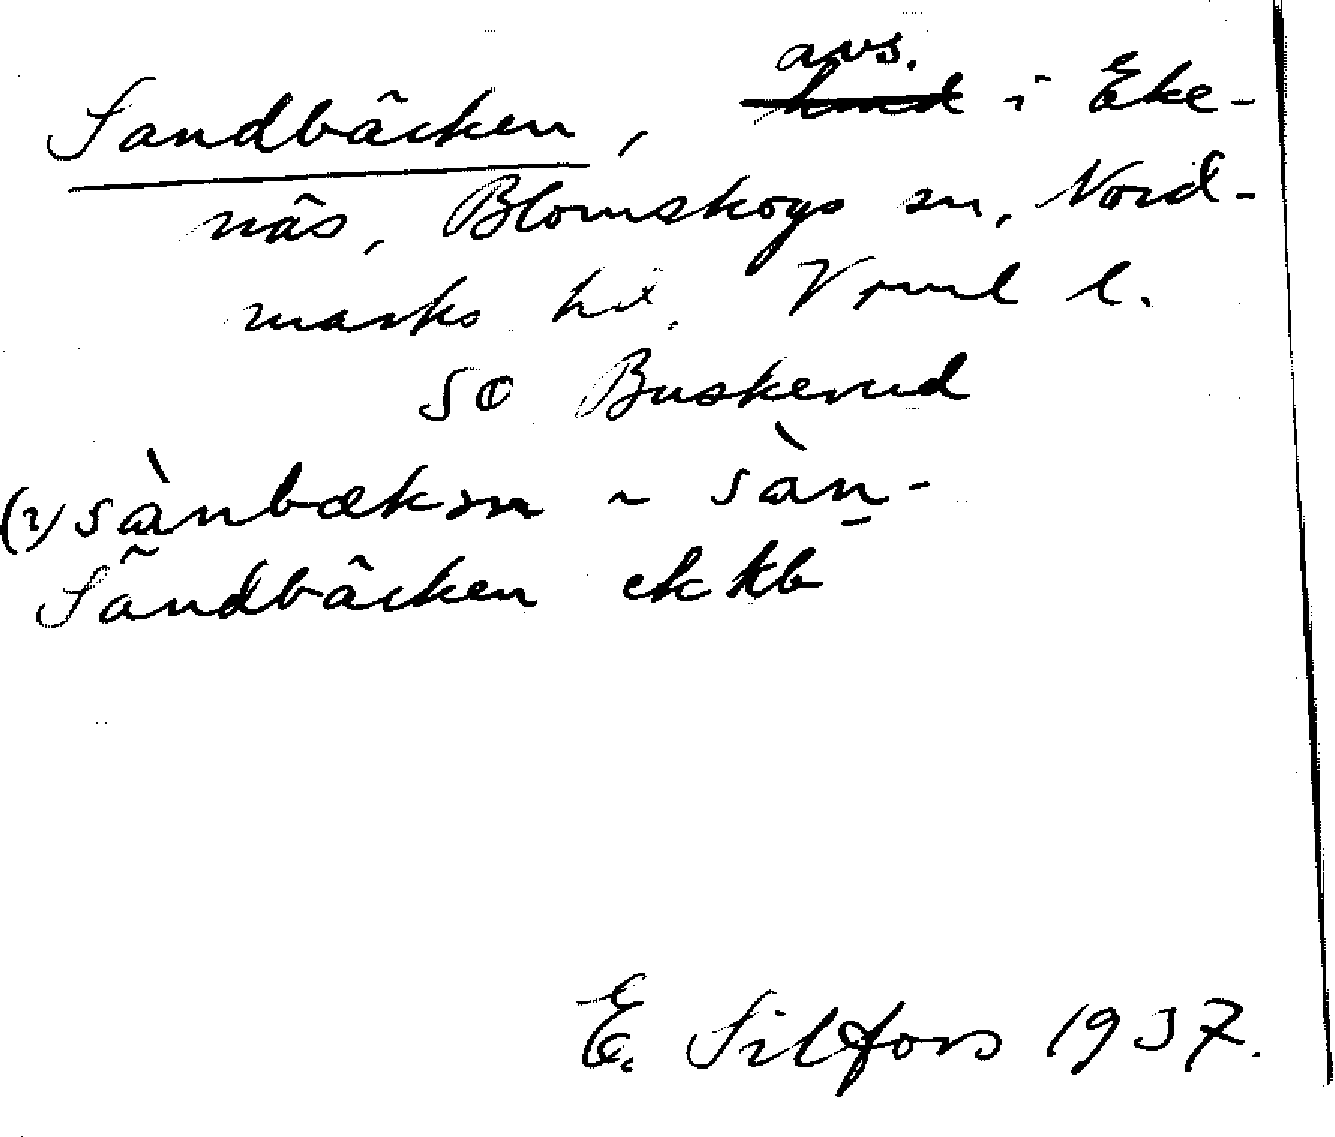 Sandbäcken, avs. i Eke-
näs, Blomskogs sn, Nord-
marks hd, Vrml l.
SO Buskerud
(2) sànbækən ~ sàn-
Sandbäcken ek kb
E. Silfors 1937.